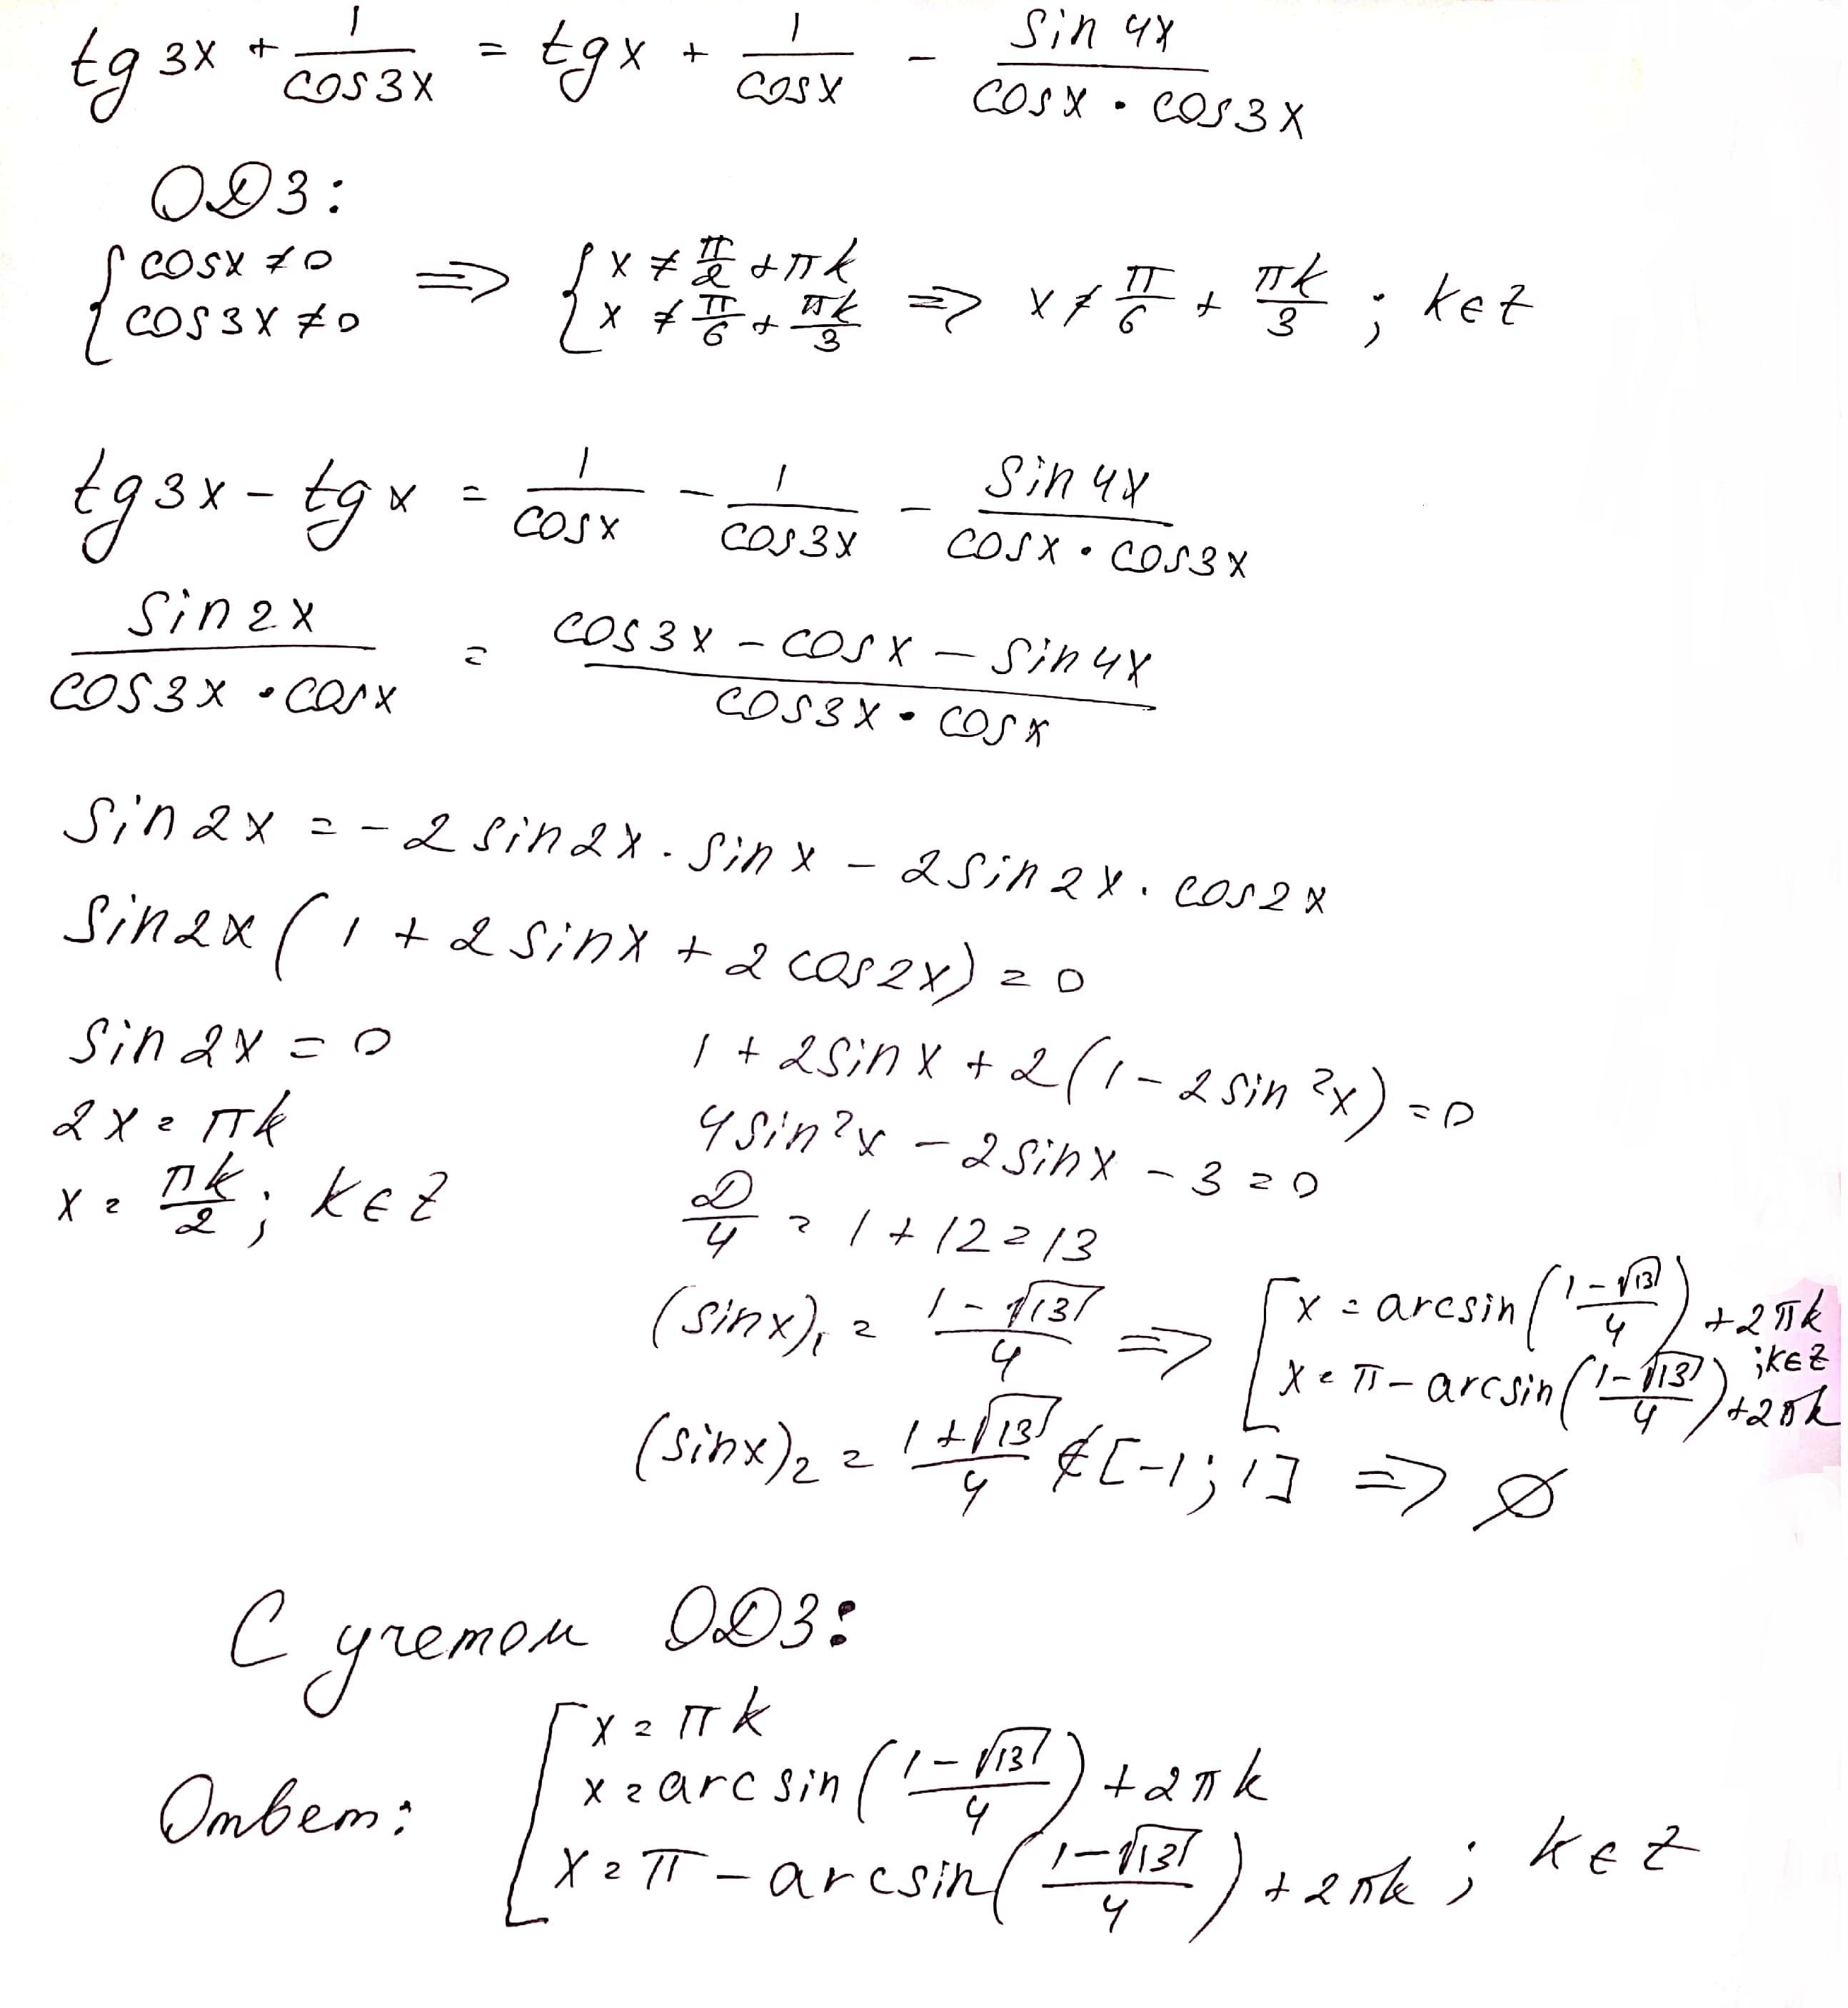 tg 3x + 1/cos3x = tgx + 1/cosx - sin 4x/(cosx · cos3x)
ОДЗ:
{ cosx ≠ 0 => { x ≠ π/2 + πk
{ cos3x ≠ 0 { x ≠ π/6 + πk/3 => x ≠ π/6 + πk/3 ; k∈Z
tg3x - tgx = 1/cosx - 1/cos3x - sin4x/(cosx · cos3x)
sin2x/(cos3x · cosx) = (cos3x - cosx - sin4x)/(cos3x · cosx)
sin2x = -2sin2x · sinx - 2sin2x · cos2x
sin2x(1 + 2sinx + 2cos2x) = 0
sin2x = 0
2x = πk
x = πk/2 ; k∈Z
1 + 2sinx + 2(1 - 2sin²x) = 0
4sin²x - 2sinx - 3 = 0
D/4 = 1 + 12 = 13
(sinx)₁ = (1-√13)/4 => [ x = arcsin((1-√13)/4) + 2πk
[ x = π - arcsin((1-√13)/4) + 2πk ; k∈Z
(sinx)₂ = (1+√13)/4 ∉ [-1; 1] => ∅
С учетом ОДЗ:
Ответ: [ x = πk
[ x = arcsin((1-√13)/4) + 2πk
[ x = π - arcsin((1-√13)/4) + 2πk ; k∈Z